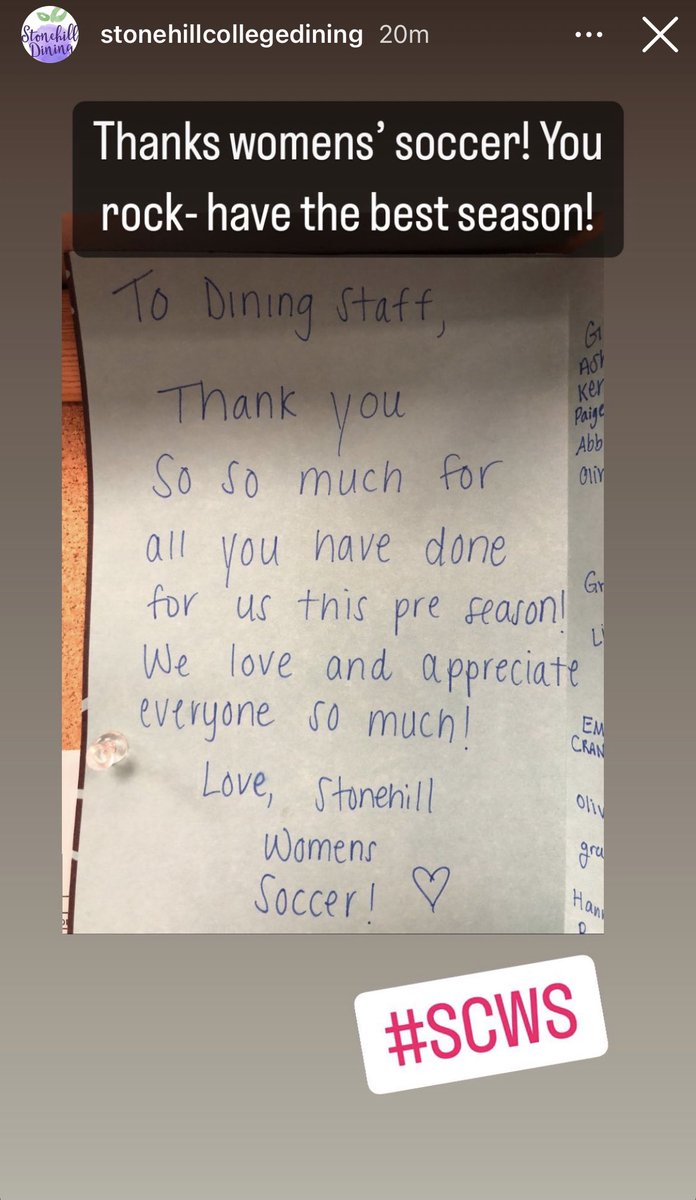 Stonehill
Dining
stonehillcollegedining 20m
Thanks womens’ soccer! You
rock- have the best season!
To Dining Staff,
Thank you
So so much for
all you have done
for us this pre season!
We love and appreciate
everyone so much!
Love, Stonehill
Womens
Soccer!
Paige
#SCWS